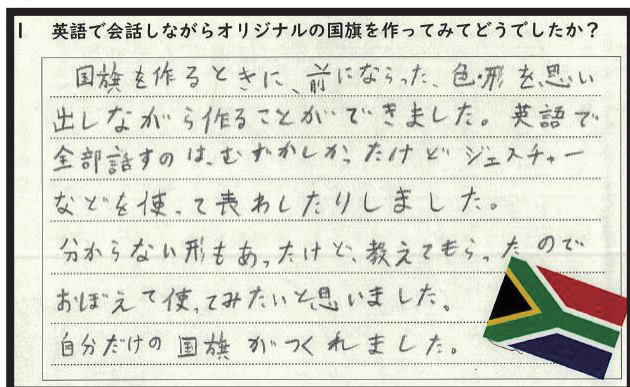 1 英語で会話しながらオリジナルの国旗を作ってみてどうでしたか？
国旗を作るときに、前にならった、色・形を思い
出しながら作ることができました。英語で
全部話すのは、むずかしかったけど ジェスチャー
などを使って表わしたりしました。
分からない形もあったけど、教えてもらったので
おぼえて使ってみたいと思いました。
自分だけの国旗がつくれました。